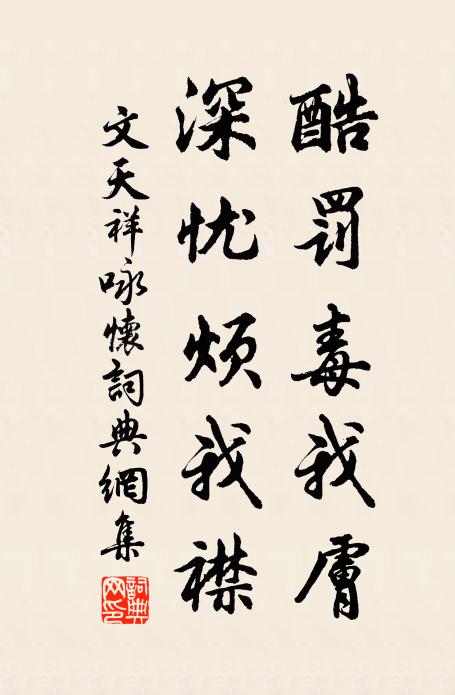 酷罰毒我膚
深忧煩我襟
文天祥咏懷詞典網集
詞典网印